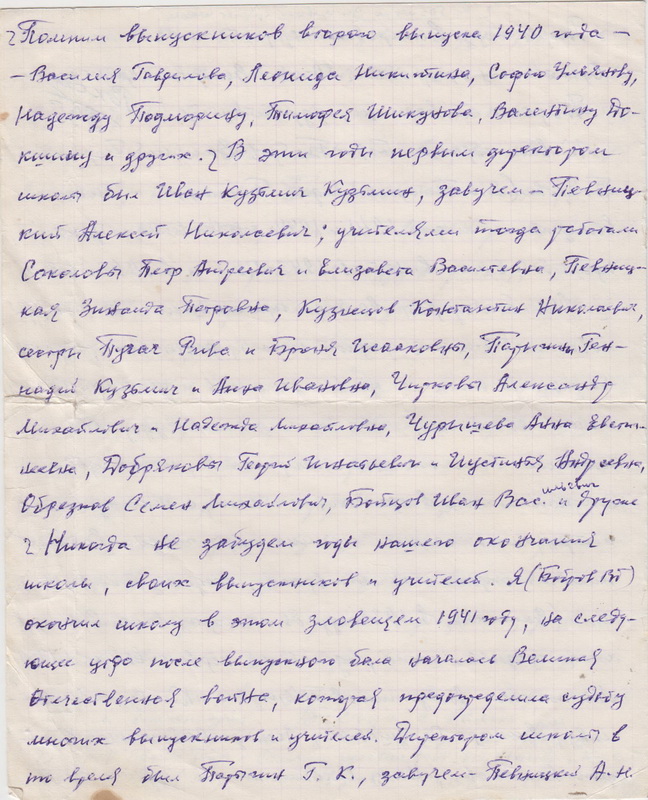 Помним выпускников второго выпуска 1940 года -
- Василия Гаврилова, Леонида Никитина, Софью Ульянову,
Надежду Подморину, Тимофея Шикунова, Валентину До-
кшину и других. В эти годы первым директором
школы был Иван Кузьмич Кузьмин, завучем - Певниц-
кий Алексей Николаевич; учителями тогда работали
Соколовы Петр Андреевич и Елизавета Васильевна, Певниц-
кая Зинаида Петровна, Кузнецов Константин Николаевич,
сестры Пугач Рива и Броня Исааковны, Парыгины Ген-
надий Кузьмич и Анна Ивановна, Чирковы Александр
Михайлович и Надежда Михайловна, Чурышева Анна Евгень-
евна, Добряковы Георгий Игнатьевич и Иустинья Андреевна,
Образков Семен Михайлович, Бойцов Иван Васильевич и другие
Никогда не забудем годы нашего окончания
школы, своих выпускников и учителей. Я (Бобров Вт)
окончил школу в этом зловещем 1941 году, на следу-
ющее утро после выпускного бала началась Великая
Отечественная война, которая предопределила судьбу
многих выпускников и учителей. Директором школы в
то время был Парыгин Г. К., завучем - Певницкий А. Н.